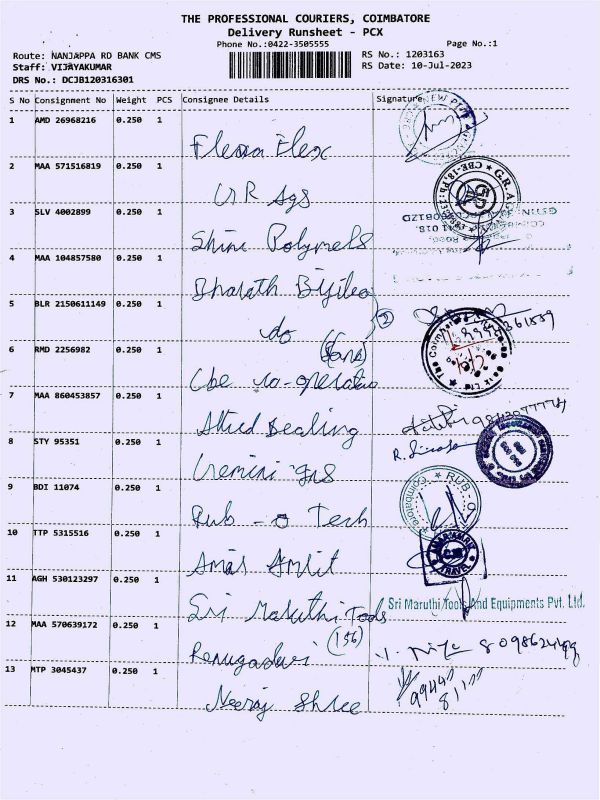 THE PROFESSIONAL COURIERS, COIMBATORE
Delivery Runsheet - PCX
Phone No.:0422-3505555
Page No.:1
Route: NANJAPPA RD BANK CMS
RS No.: 1203163
Staff: VIJAYAKUMAR
RS Date: 10-Jul-2023
DRS No.: DCJB120316301
S No Consignment No Weight PCS Consignee Details Signature
1 AMD 26968216 0.250 1
Flexa Flex
2 MAA 571516819 0.250 1
GR Ags
3 SLV 4002899 0.250 1
Shine Polymers
4 MAA 104857580 0.250 1
Bharath Bijlee
5 BLR 2150611149 0.250 1
do
2
6 RMD 2256982 0.250 1
(Bank)
Cbe co-operative
7 MAA 860453857 0.250 1
Allied Bealing
8 STY 95351 0.250 1
R.
Gemini Ins
9 BDI 11074 0.250 1
RUB
Coimbatore
Rub - o Tech
10 TTP 5315516 0.250 1
AMAR AMRIT
TRAVEL
Amar Amrit
11 AGH 530123297 0.250 1
Sri Maruthi Tools And Equipments Pvt. Ltd.
Sri Maruthi Tools
12 MAA 570639172 0.250 1
(156)
Renugadevi
13 MTP 3045437 0.250 1
Neeraj Shree